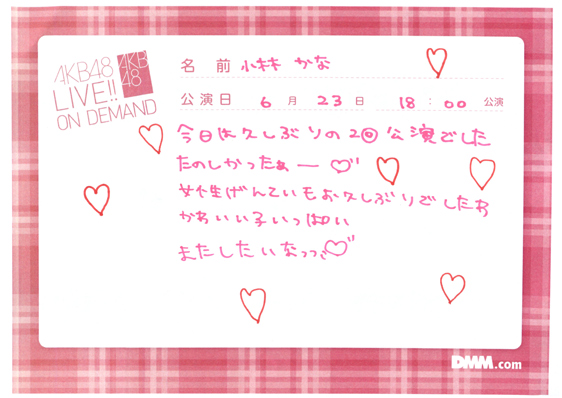 AKB48
LIVE!!
ON DEMAND
AKB
48
名前 小林 かな
公演日 6月 23日 18:00 公演
今日は久しぶりの2回公演でした
たのしかったぁー
女性げんていもお久しぶりでしたわ
かわいい子いっぱい
またしたいなっっ
DMM.com